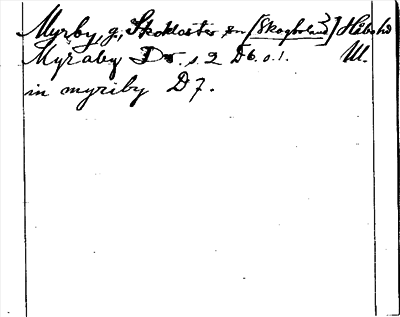 Myrby, g., Skokloster sn [Skogboland] Håbo hd
Myraby Dr. s. 2 D6. o. 1. U.
in myriby D7.